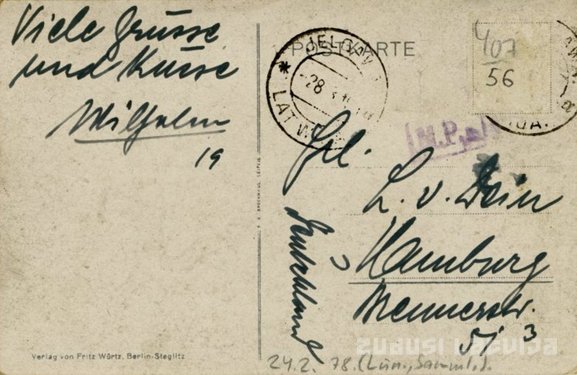 Viele Grüsse
und Küsse
Wilhelm
19
POSTKARTE
JELGAVA
28
LATVIJA
407
56
Frl.
L. v. Dein
Hamburg
Brennerstr.
51 3
Deutschland
Verlag von Fritz Würtz, Berlin-Steglitz
24.2. 78.
ZUDUSI LATVIJA